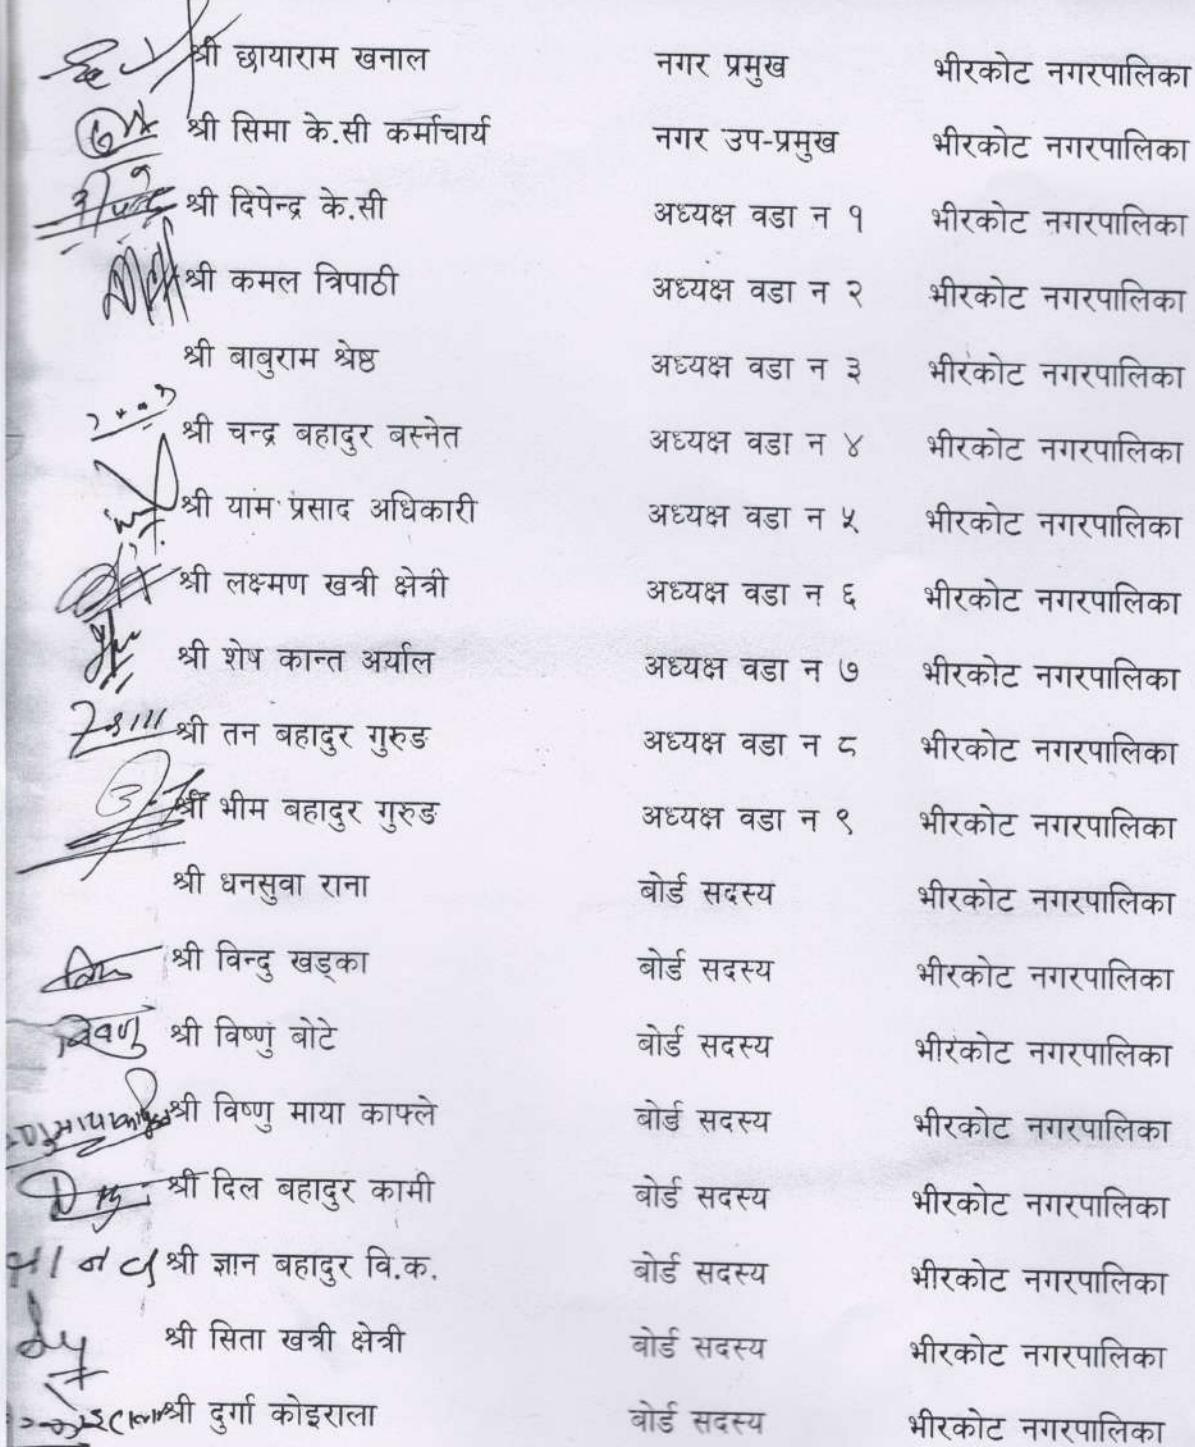 श्री छायाराम खनाल नगर प्रमुख भीरकोट नगरपालिका
श्री सिमा के.सी कर्माचार्य नगर उप-प्रमुख भीरकोट नगरपालिका
श्री दिपेन्द्र के.सी अध्यक्ष वडा न १ भीरकोट नगरपालिका
श्री कमल त्रिपाठी अध्यक्ष वडा न २ भीरकोट नगरपालिका
श्री बाबुराम श्रेष्ठ अध्यक्ष वडा न ३ भीरकोट नगरपालिका
श्री चन्द्र बहादुर बस्नेत अध्यक्ष वडा न ४ भीरकोट नगरपालिका
श्री याम प्रसाद अधिकारी अध्यक्ष वडा न ५ भीरकोट नगरपालिका
श्री लक्ष्मण खत्री क्षेत्री अध्यक्ष वडा न ६ भीरकोट नगरपालिका
श्री शेष कान्त अर्याल अध्यक्ष वडा न ७ भीरकोट नगरपालिका
श्री तन बहादुर गुरुङ अध्यक्ष वडा न ८ भीरकोट नगरपालिका
श्री भीम बहादुर गुरुङ अध्यक्ष वडा न ९ भीरकोट नगरपालिका
श्री धनसुवा राना बोर्ड सदस्य भीरकोट नगरपालिका
श्री विन्दु खड्का बोर्ड सदस्य भीरकोट नगरपालिका
श्री विष्णु बोटे बोर्ड सदस्य भीरकोट नगरपालिका
श्री विष्णु माया काफ्ले बोर्ड सदस्य भीरकोट नगरपालिका
श्री दिल बहादुर कामी बोर्ड सदस्य भीरकोट नगरपालिका
श्री ज्ञान बहादुर वि.क. बोर्ड सदस्य भीरकोट नगरपालिका
श्री सिता खत्री क्षेत्री बोर्ड सदस्य भीरकोट नगरपालिका
श्री दुर्गा कोइराला बोर्ड सदस्य भीरकोट नगरपालिका